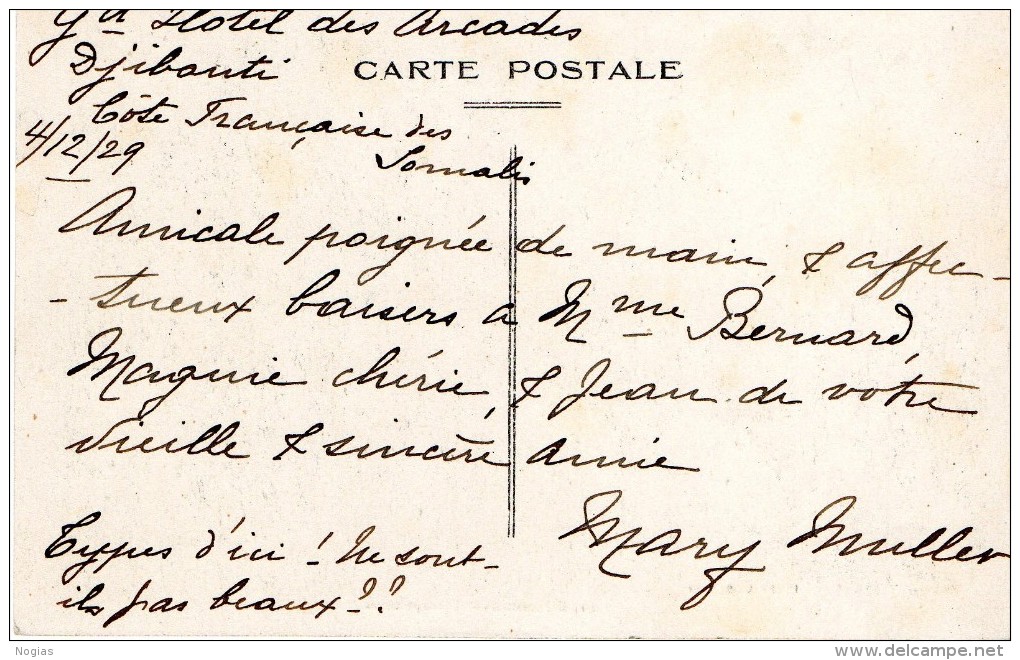 Gd Hotel des Arcades
Djibouti
CARTE POSTALE
Côte Française des
Somalis
4/12/29
Amicale poignée de main, & affec-
-tueux baisers a Mme Bernard,
Maguie chérie, & Jean de votre
vieille & sincère amie
Mary Muller
Types d'ici ! Ne sont-
ils pas beaux??
Nogias
www.delcampe.net